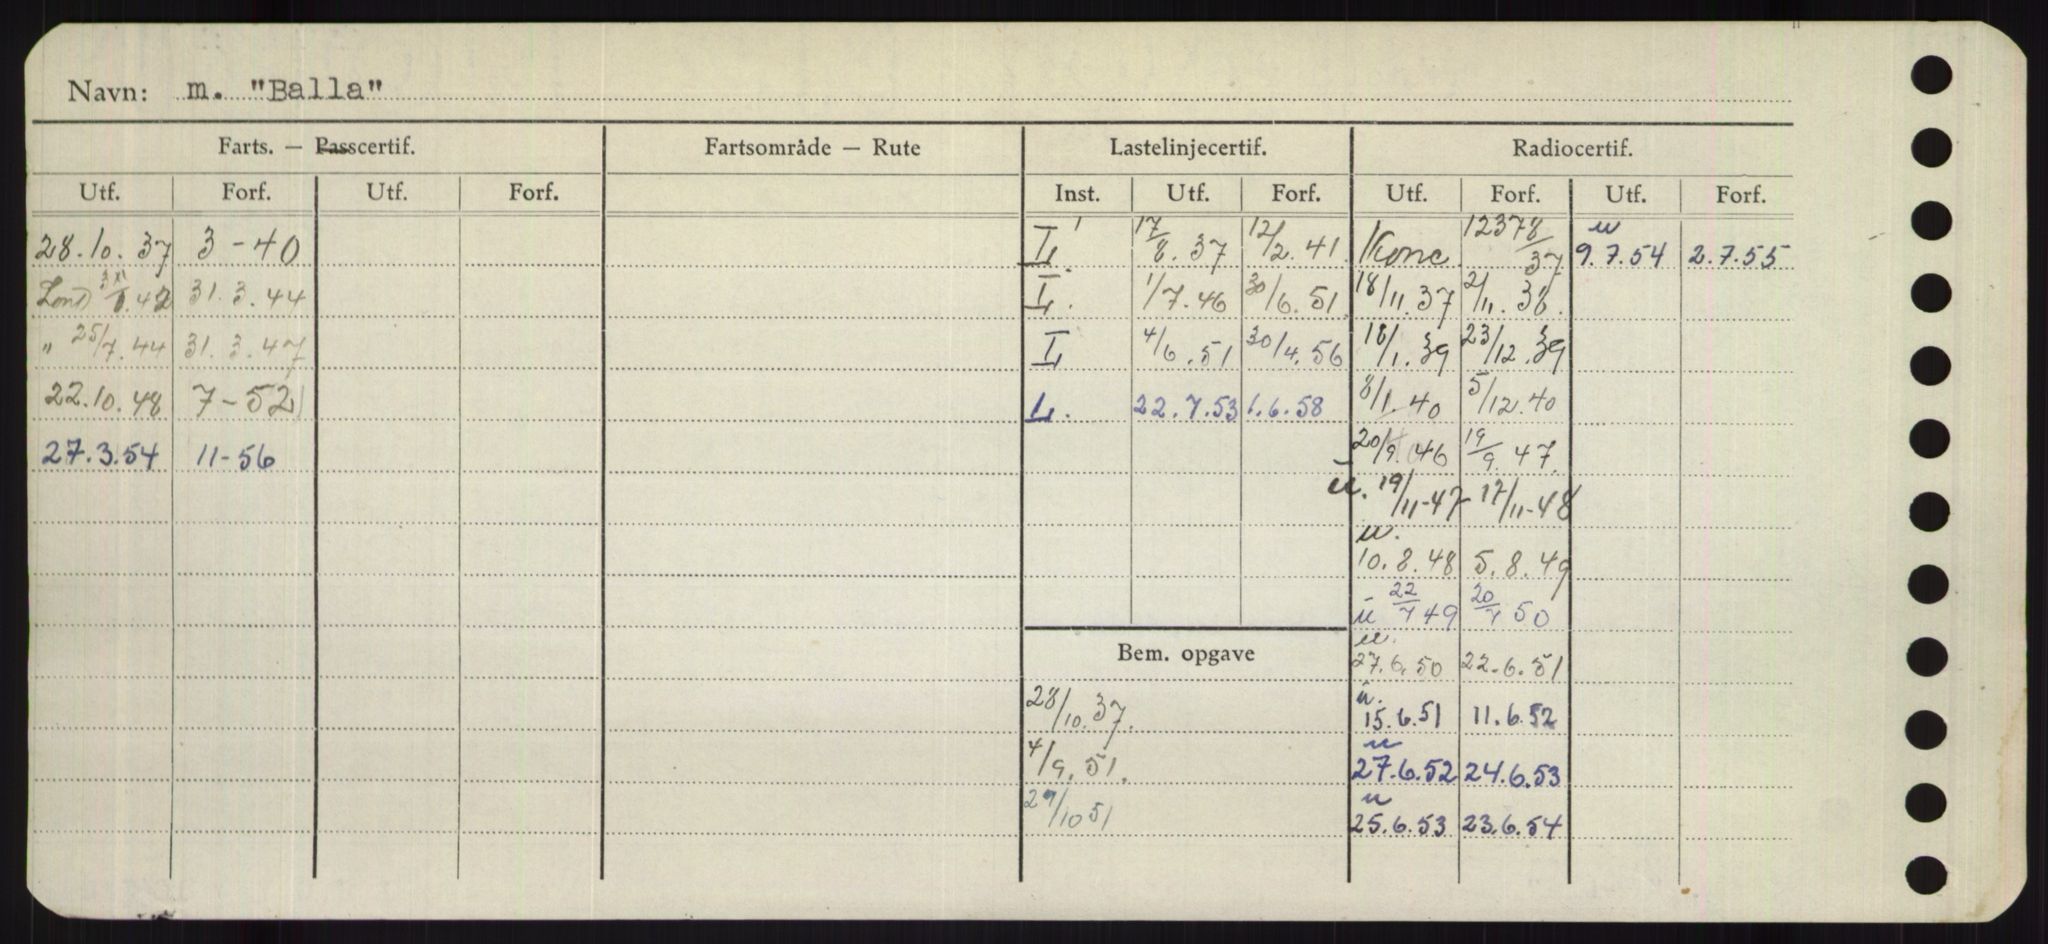 Navn: m. "Balla"
Farts. — Passcertif. Fartsområde — Rute Lastelinjecertif. Radiocertif.
Utf. Forf. Utf. Forf. Inst. Utf. Forf. Utf. Forf. Utf. Forf.
28.10.37 3-40 L. 17/8.37 12/2.41 Konc 12378/37 u 9.7.54 2.7.55
Lond 31.3.44 L. 1/7.46 30/6.51 18/11.37 2/11.38.
" 25/7.44 31.3.47 L 4/6.51 30/4.56 18/1.39 23/12.39
22.10.48 7-52 L. 22.7.53 1.6.58 8/1.40 5/12.40
27.3.54 11-56 20/9.46 19/9.47.
u. 19/11-47 17/11-48
u.
10.8.48 5.8.49
u 22/7 49 20/7 50
u.
Bem. opgave 27.6.50 22.6.51
28/10.37. u. 15.6.51 11.6.52
4/9.51. u 27.6.52 24.6.53
29/10 51 u 25.6.53 23.6.54